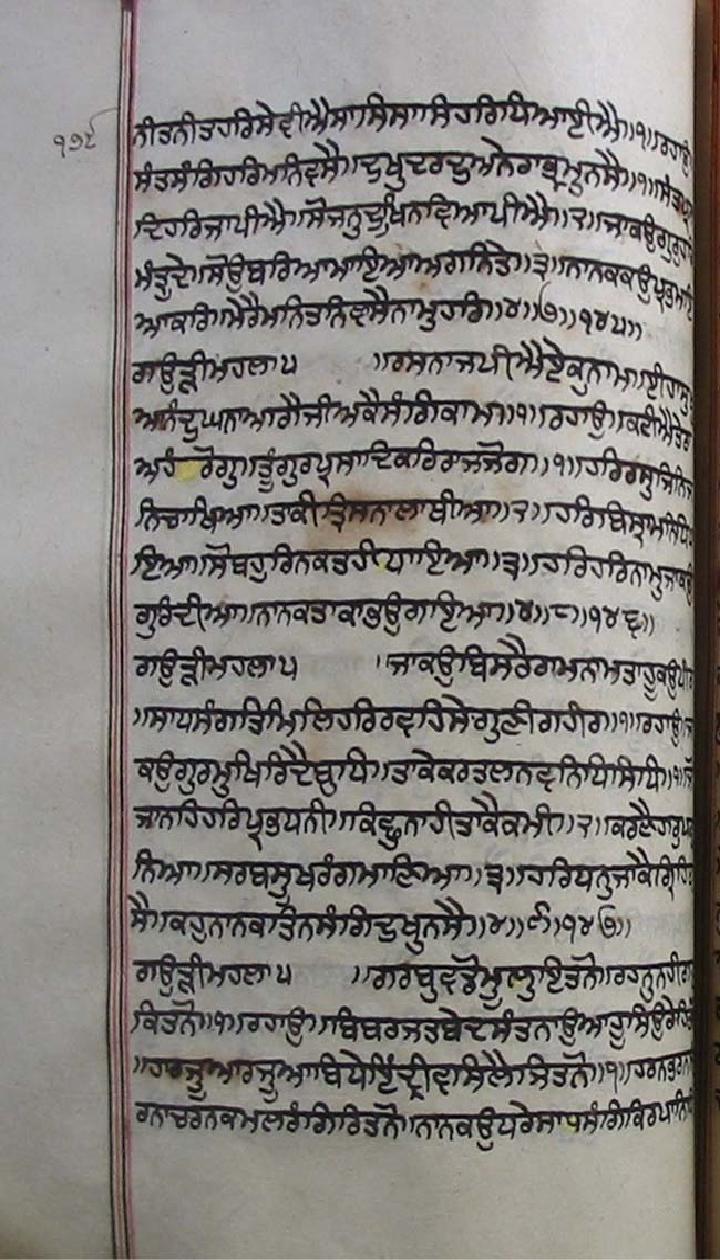 ੧੭੮
ਨੀਤਨੀਤਹਰਿਸੇਵੀਐਸਾਸਿਸਾਸਿਹਰਿਧਿਆਈਐ॥੧॥ਰਹਾਉ
ਸੰਤਸੰਗਿਹਰਿਮਨਿਵਸੈ॥ਦੁਖੁਦਰਦੁਅਨੇਰਾਭ੍ਰਮੁਨਸੈ॥੧॥ਸੰਤਪ੍ਰ
ਦਿਹਰਿਜਾਪੀਐ॥ਸੋਜਨੁਦੂਖਿਨਵਿਆਪੀਐ॥੨॥ਜਾਕਉਗੁਰੁਹਰਿ
ਮੰਤ੍ਰੁਦੇ॥ਸੋਉਬਰਿਆਮਾਇਆਅਗਨਿਤੇ॥੩॥ਨਾਨਕਕਉਪ੍ਰਭਮਇ
ਆਕਰਿ॥ਮੇਰੈਮਨਿਤਨਿਵਸੈਨਾਮੁਹਰਿ॥੪॥੭॥੧੪੫॥
ਗਉੜੀਮਹਲਾ੫ ॥ਰਸਨਾਜਪੀਐਏਕੁਨਾਮ॥ਈਹਾਸੁ
ਅਨੰਦੁਘਨਾਆਗੈਜੀਅਕੈਸੰਗਿਕਾਮ॥੧॥ਰਹਾਉ॥ਕਟੀਐਤੇਰਾ
ਅਹੰ ਰੋਗੁ॥ਤੂੰਗੁਰਪ੍ਰਸਾਦਿਕਰਿਰਾਜਜੋਗ॥੧॥ਹਰਿਰਸੁਜਿਨਿਜ
ਨਿਚਾਖਿਆ॥ਤਾਕੀਤ੍ਰਿਸਨਾਲਾਥੀਆ॥੨॥ਹਰਿਬਿਸ੍ਰਾਮਨਿਧਿ
ਇਆ॥ਸੋਬਹੁਰਿਨਕਤਹੀਧਾਇਆ॥੩॥ਹਰਿਹਰਿਨਾਮੁਜਾਕਉ
ਗੁਰਿਦੀਆ॥ਨਾਨਕਤਾਕਾਭਉਗਾਇਆ॥੪॥੮॥੧੪੬॥
ਗਉੜੀਮਹਲਾ੫ ॥ਜਾਕਉਬਿਸਰੈਰਾਮਨਾਮਤਾਹੂਕਉਪੀਰ
॥ਸਾਧਸੰਗਤਿਮਿਲਿਹਰਿਰਵਹਿਸੇਗੁਣੀਗਹੀਰ॥੧॥ਰਹਾਉ॥ਜਾ
ਕਉਗੁਰਮੁਖਿਰਿਦੈਬੁਧਿ॥ਤਾਕੇਕਰਤਲਨਵਨਿਧਿਸਿਧਿ॥੧॥ਜੋ
ਜਾਨਹਿਹਰਿਪ੍ਰਭਧਨੀ॥ਕਿਛੁਨਾਹੀਤਾਕੈਕਮੀ॥੨॥ਕਰਣੈਹਾਰੁਪਛਾ
ਨਿਆ॥ਸਰਬਸੁਖਰੰਗਮਾਣਿਆ॥੩॥ਹਰਿਧਨੁਜਾਕੈਗ੍ਰਿਹਿ
ਸੈ॥ਕਹੁਨਾਨਕਤਿਨਸੰਗਿਦੁਖੁਨਸੈ॥੪॥੯॥੧੪੭॥
ਗਉੜੀਮਹਲਾ੫ ॥ਗਰਬੁਵਡੋਮੂਲੁਇਤਨੋ॥ਰਹਨੁਨਹੀਗ
ਕਿਤਨੋ॥੧॥ਰਹਾਉ॥ਬਿਬਰਜਤਬੇਦਸੰਤਨਾਉਆਹੂਸਿਉਰੇਹਿਤ
॥ਹਾਰਜੂਆਰਜੂਆਬਿਧੇਇੰਦ੍ਰੀਵਸਿਲੈਜਿਤਨੋ॥੧॥ਹਰਨਭਰਨ
ਰਨਾਚਰਨਕਮਲਰੰਗਿਰਿਤਨੋ॥ਨਾਨਕਉਧਰੇਸਾਧਸੰਗਿਕਿਰਪਾਨਿਧਿ